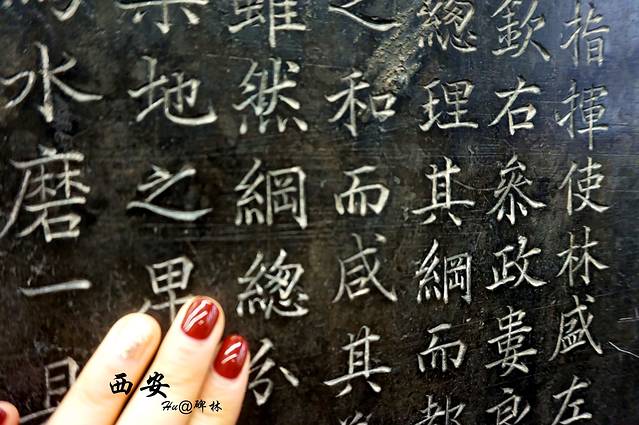 指揮使林盛左
欽右叅政婁良
總理其綱而都
之和而咸其
雖然綱總分
地之卑
水磨一
西安
Hu@碑林